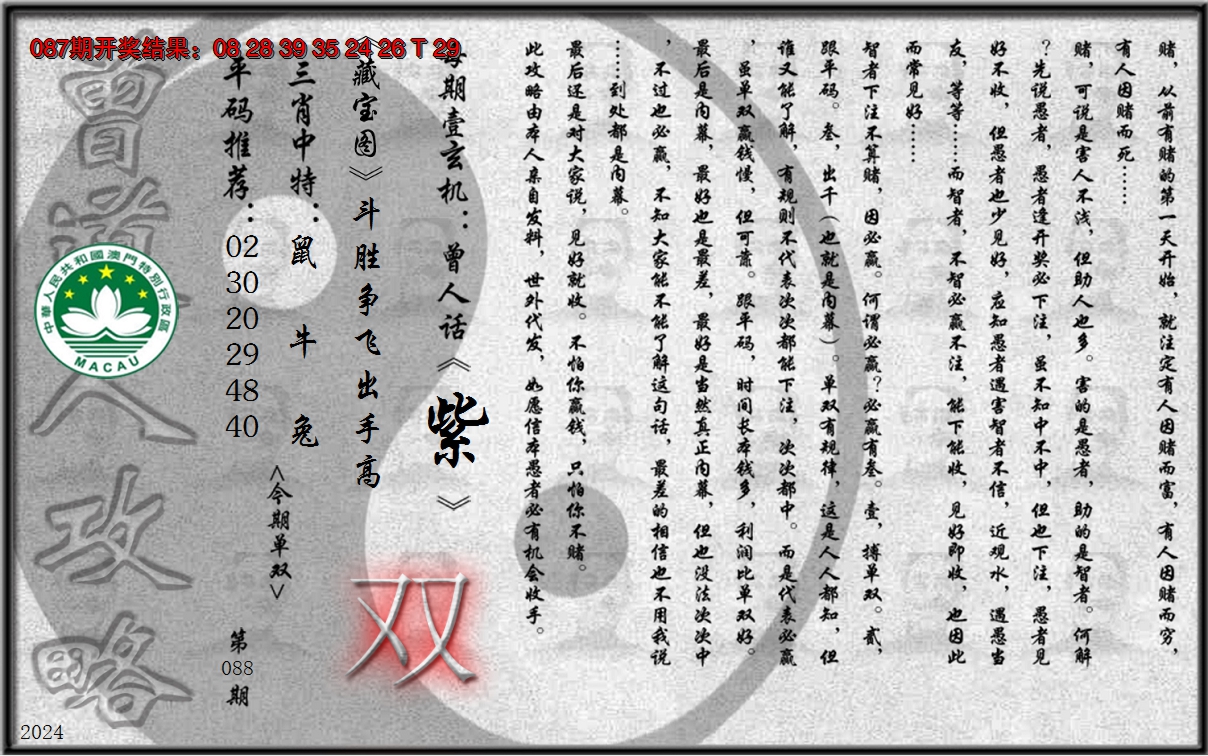 087期开奖结果：08 28 39 35 24 26 T 29
赌，从前有赌的第一天开始，就注定有人因赌而富，有人因赌而穷，
有人因赌而死……
赌，可说是害人不浅，但助人也多。害的是愚者，助的是智者。何解
？先说愚者，愚者逢开奖必下注，虽不知中不中，但也下注，愚者见
好不收，但愚者也少见好，应知愚者遇害智者不信，近观水，遇愚当
友，等等……而智者，不智必赢不注，能下能收，见好即收，也因此
而常见好……
智者下注不算赌，因必赢。何谓必赢？必赢有叁。壹，搏单双。贰，
跟平码。叁，出千（也就是内幕）。单双有规律，这是人人都知，但
谁又能了解，有规则不代表次次都能下注，次次都中。而是代表必赢
，虽单双赢钱慢，但可靠。跟平码，时间长本钱多，利润比单双好。
最后是内幕，最好也是最差，最好是当然真正内幕，但也没法次次中
，不过也必赢，不知大家能不能了解这句话，最差的相信也不用我说
……到处都是内幕。
最后还是对大家说，见好就收。不怕你赢钱，只怕你不赌。
此攻略由本人亲自发料，世外代发，如愿信本愚者必有机会收手。
每期壹玄机：曾人话《紫》
《藏宝图》斗胜争飞出手高
双
三肖中特：鼠 牛 兔
<今期单双>
平码推荐：02 30 20 29 48 40
第088期
曾道人攻略
中華人民共和國澳門特別行政區
MACAU
2024